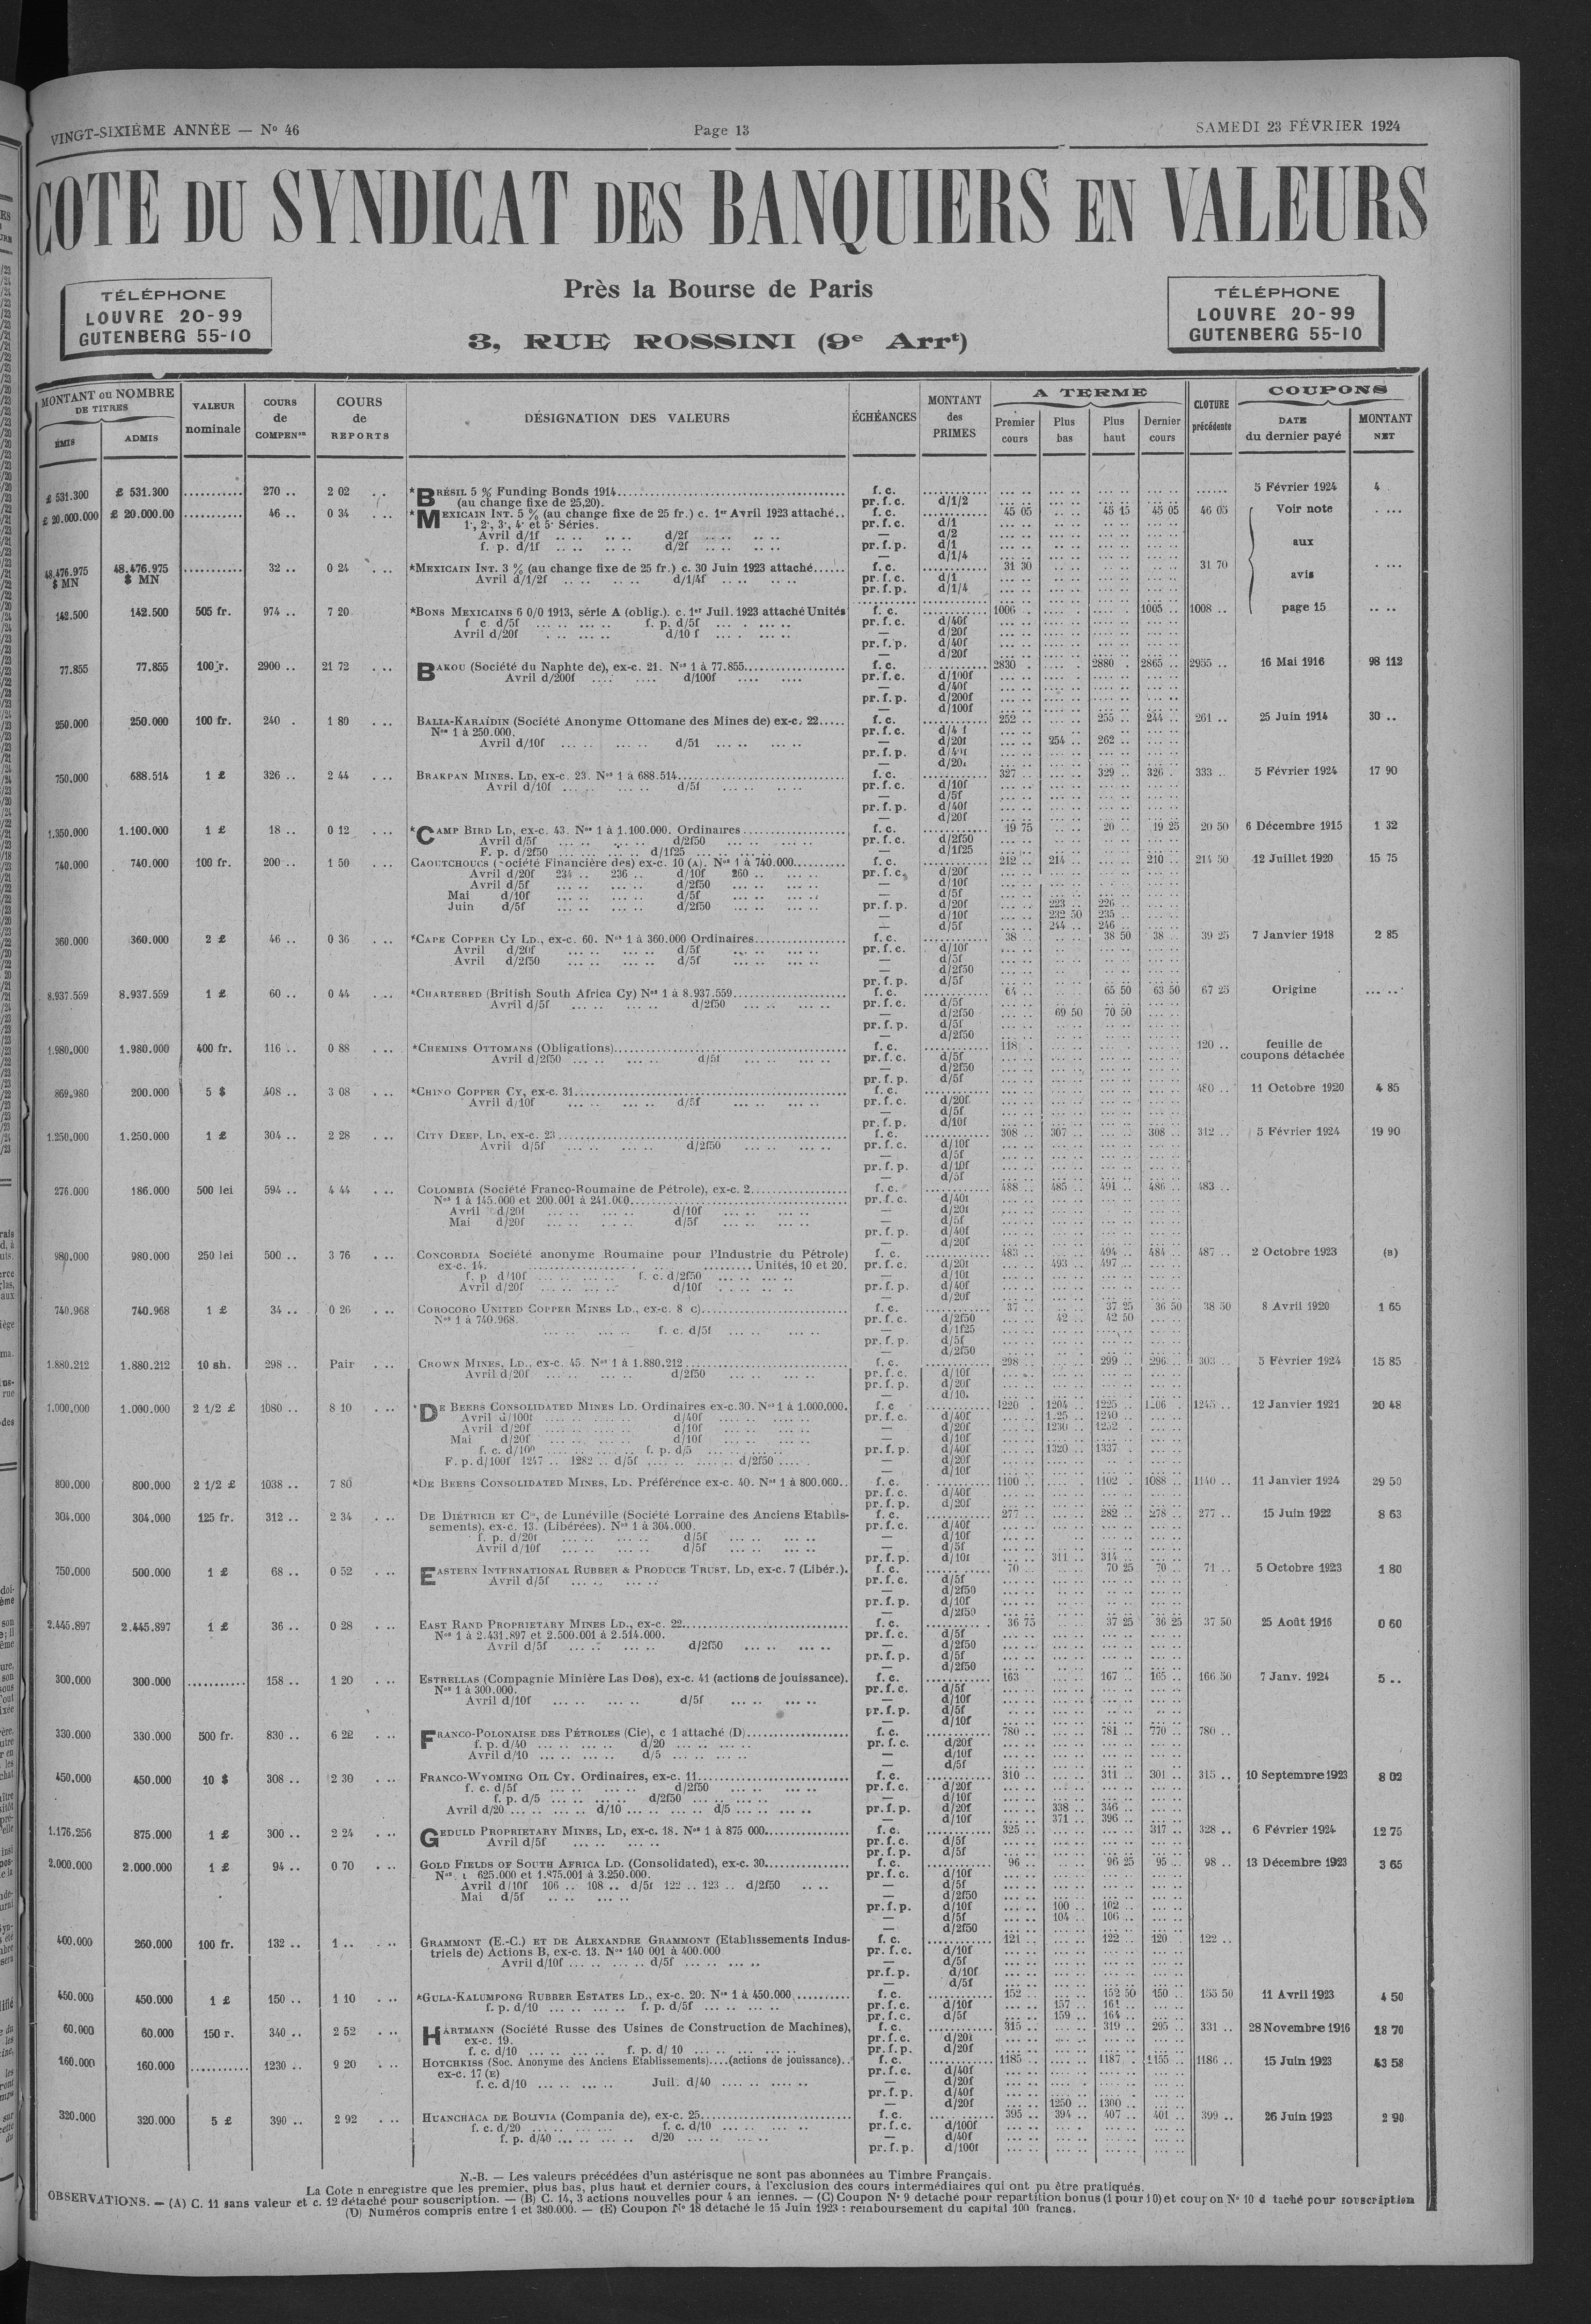 VINGT-SIXIÈME ANNÉE — No 46
Page 13
SAMEDI 23 FÉVRIER 1924
COTE DU SYNDICAT DES BANQUIERS EN VALEURS
TÉLÉPHONE
LOUVRE 20-99
GUTENBERG 55-10
Près la Bourse de Paris
3, RUE ROSSINI (9e Arrt)
TÉLÉPHONE
LOUVRE 20-99
GUTENBERG 55-10
MONTANT ou NOMBRE DE TITRES
ÉMIS ADMIS
VALEUR nominale
COURS de COMPENon
COURS de REPORTS
DÉSIGNATION DES VALEURS
ÉCHÉANCES
MONTANT des PRIMES
A TERME
Premier cours Plus bas Plus haut Dernier cours
CLOTURE précédente
COUPONS
DATE du dernier payé
MONTANT NET
£ 531.300 £ 531.300 ........... 270 .. 2 02 .. *BRÉSIL 5 % Funding Bonds 1914 f. c. 5 Février 1924 4
(au change fixe de 25,20). pr. f. c. d/1/2
£ 20.000.000 £ 20.000.00 ........... 46 .. 0 34 ... *MEXICAIN INT. 5 % (au change fixe de 25 fr.) c. 1er Avril 1923 attaché.. f. c. 45 05 45 15 45 05 46 05 Voir note
1e, 2e, 3e, 4e et 5e Séries. pr. f. c. d/1
Avril d/1f d/2f — d/2
f. p. d/1f d/2f pr. f. p. d/1 aux
— d/1/4
48.476.975 $ MN 48.476.975 $ MN ........... 32 .. 0 24 ... *MEXICAIN INT. 3 % (au change fixe de 25 fr.) c. 30 Juin 1923 attaché...... f. c. 31 30 31 70
Avril d/1/2f d/1/4f pr. f. c. d/1 avis
pr. f. p. d/1/4
142.500 142.500 505 fr. 974 .. 7 20 *BONS MEXICAINS 6 0/0 1913, série A (oblig.). c. 1er Juil. 1923 attaché Unités f. c. 1006 1005 .. 1008 .. page 15
f c d/5f f. p. d/5f pr. f. c. d/40f
Avril d/20f d/10 f — d/20f
pr. f. p. d/40f
— d/20f
77.855 77.855 100 r. 2900 .. 21 72 ... BAKOU (Société du Naphte de), ex-c. 21. Nos 1 à 77.855 f. c. 2830 2880 2865 .. 2955 .. 16 Mai 1916 98 112
Avril d/200f d/100f pr. f. c. d/100f
— d/40f
pr. f. p. d/200f
— d/100f
250.000 250.000 100 fr. 240 . 1 80 ... BALIA-KARAÏDIN (Société Anonyme Ottomane des Mines de) ex-c. 22..... f. c. 252 .. 255 .. 244 .. 261 .. 25 Juin 1914 30 ..
Nos 1 à 250.000. pr. f. c.
Avril d/10f — d/20f 254 .. 262 ..
pr. f. p.
750.000 688.514 1 £ 326 .. 2 44 ... BRAKPAN MINES, LD, ex-c. 23. Nos 1 à 688.514 f. c. 327 .. 329 .. 326 . 333 .. 5 Février 1924 17 90
Avril d/10f d/5f pr. f. c. d/10f
— d/5f
pr. f. p. d/40f
— d/20f
1.350.000 1.100.000 1 £ 18 .. 0 12 ... *CAMP BIRD LD, ex-c. 43. Nos 1 à 1.100.000. Ordinaires f. c. 19 75 20 .. 19 25 20 50 6 Décembre 1915 1 32
Avril d/5f d/2f50 pr. f. c. d/2f50
F. p. d/2f50 d/1f25 — d/1f25
740.000 740.000 100 fr. 200 .. 1 50 ... CAOUTCHOUCS (Société Financière des) ex-c. 10 (A). Nos 1 à 740.000 f. c. 212 .. 214 .. 210 .. 214 50 12 Juillet 1920 15 75
Avril d/20f 234 .. 236 .. d/10f 260 .. pr. f. c. d/20f
Avril d/5f d/2f50 — d/10f
Mai d/10f d/5f — d/5f
Juin d/5f d/2f50 pr. f. p. d/20f 223 .. 226 ..
— d/10f 232 50 235 ..
— d/5f 244 .. 246 ..
360.000 360.000 2 £ 46 .. 0 36 ... *CAPE COPPER CY LD., ex-c. 60. Nos 1 à 360.000 Ordinaires f. c. 38 .. 38 50 38 .. 39 25 7 Janvier 1918 2 85
Avril d/20f d/5f pr. f. c. d/10f
Avril d/2f50 d/5f — d/5f
— d/2f50
pr. f. p. d/5f
8.937.559 8.937.559 1 £ 60 .. 0 44 ... *CHARTERED (British South Africa Cy) Nos 1 à 8.937.559 f. c. 64 .. 65 50 63 50 67 25 Origine
Avril d/5f d/2f50 pr. f. c. d/5f
— d/2f50 69 50 70 50
pr. f. p. d/5f
— d/2f50
1.980.000 1.980.000 400 fr. 116 .. 0 88 ... *CHEMINS OTTOMANS (Obligations) f. c. 118 . 120 .. feuille de coupons détachée
Avril d/2f50 d/5f pr. f. c. d/5f
— d/2f50
pr. f. p. d/5f
869.980 200.000 5 $ 408 .. 3 08 ... *CHINO COPPER CY, ex-c. 31 f. c. 480 .. 11 Octobre 1920 4 85
Avril d/10f d/5f pr. f. c. d/20f
— d/5f
pr. f. p. d/10f
1.250.000 1.250.000 1 £ 304 .. 2 28 ... CITY DEEP, LD, ex-c. 23 f. c. 308 .. 307 .. 308 .. 312 .. 5 Février 1924 19 90
Avril d/5f d/2f50 pr. f. c. d/10f
— d/5f
pr. f. p. d/10f
— d/5f
276.000 186.000 500 lei 594 .. 4 44 ... COLOMBIA (Société Franco-Roumaine de Pétrole), ex-c. 2 f. c. 488 .. 485 .. 491 .. 486 .. 483 ..
Nos 1 à 145.000 et 200.001 à 241.000 pr. f. c. d/40f
Avril d/20f d/10f — d/20f
Mai d/20f d/5f — d/5f
pr. f. p. d/40f
— d/20f
980.000 980.000 250 lei 500 .. 3 76 ... CONCORDIA Société anonyme Roumaine pour l'Industrie du Pétrole) f. c. 483 .. 494 .. 484 .. 487 .. 2 Octobre 1923 (B)
ex-c. 14. Unités, 10 et 20. pr. f. c. d/20f 493 .. 497 ..
f. p d/10f f. c. d/2f50 — d/10f
Avril d/20f d/10f pr. f. p. d/40f
— d/20f
740.968 740.968 1 £ 34 .. 0 26 ... COROCORO UNITED COPPER MINES LD., ex-c. 8 c) f. c. 37 .. 37 25 36 50 38 50 8 Avril 1920 1 65
Nos 1 à 740.968. pr. f. c. d/2f50 42 .. 42 50
f. c. d/5f — d/1f25
pr. f. p. d/5f
— d/2f50
1.880.212 1.880.212 10 sh. 298 .. Pair ... CROWN MINES, LD., ex-c. 45. Nos 1 à 1.880.212 f. c. 298 .. 299 .. 296 .. 303 .. 5 Février 1924 15 85
Avril d/20f d/2f50 pr. f. c. d/10f
pr. f. p. d/20f
1.000.000 1.000.000 2 1/2 £ 1080 .. 8 10 ... *DE BEERS CONSOLIDATED MINES LD. Ordinaires ex-c. 30. Nos 1 à 1.000.000. f. c 1220 . 1204 .. 1225 .. 1206 . 1245 .. 12 Janvier 1921 20 48
Avril d/100f d/40f pr. f. c. d/40f 1240 ..
Avril d/20f d/10f — d/20f 1230 .. 1252 ..
Mai d/20f d/10f — d/10f
f. c. d/100 f. p. d/5 pr. f. p. d/40f 1320 .. 1337 .
F. p. d/100f 1247 .. 1282 .. d/5f d/2f50 — d/20f
— d/10f
800.000 800.000 2 1/2 £ 1038 .. 7 80 *DE BEERS CONSOLIDATED MINES, LD. Préférence ex-c. 40. Nos 1 à 800.000.. f. c. 1100 1102 .. 1088 .. 1140 .. 11 Janvier 1924 29 50
pr. f. c. d/40f
pr. f. p. d/20f
304.000 304.000 125 fr. 312 .. 2 34 ... DE DIÉTRICH ET Cie, de Lunéville (Société Lorraine des Anciens Etablis- f. c. 277 .. 282 .. 278 .. 277 .. 15 Juin 1922 8 63
sements), ex-c. 13. (Libérées). Nos 1 à 304.000. pr. f. c. d/40f
f. p. d/20f d/5f — d/10f
Avril d/10f d/5f — d/5f
pr. f. p. d/10f 311 .. 314 ..
750.000 500.000 1 £ 68 .. 0 52 ... EASTERN INTERNATIONAL RUBBER & PRODUCE TRUST, LD, ex-c. 7 (Libér.). f. c. 70 .. 70 25 70 .. 71 .. 5 Octobre 1923 1 80
Avril d/5f pr. f. c. d/5f
— d/2f50
pr. f. p. d/10f
— d/2f50
2.445.897 2.445.897 1 £ 36 .. 0 28 ... EAST RAND PROPRIETARY MINES LD., ex-c. 22 f. c. 36 75 37 25 36 25 37 50 25 Août 1916 0 60
Nos 1 à 2.431.897 et 2.500.001 à 2.514.000. pr. f. c. d/5f
Avril d/5f d/2f50 — d/2f50
pr. f. p. d/5f
— d/2f50
300.000 300.000 ........... 158 .. 1 20 ... ESTRELLAS (Compagnie Minière Las Dos), ex-c. 41 (actions de jouissance). f. c. 163 167 .. 165 .. 166 50 7 Janv. 1924 5 ..
Nos 1 à 300.000. pr. f. c. d/5f
Avril d/10f d/5f — d/10f
pr. f. p. d/5f
— d/10f
330.000 330.000 500 fr. 830 .. 6 22 ... FRANCO-POLONAISE DES PÉTROLES (Cie), c 1 attaché (D) f. c. 780 .. 781 .. 770 .. 780 ..
f. p. d/40 d/20 pr. f. c. d/20f
Avril d/10 d/5 — d/10f
— d/5f
450.000 450.000 10 $ 308 .. 2 30 ... FRANCO-WYOMING OIL CY. Ordinaires, ex-c. 11 f. c. 310 .. 311 .. 301 .. 315 .. 10 Septembre 1923 8 02
f. c. d/5f d/2f50 pr. f. c. d/20f
f. p. d/5 d/2f50 — d/10f
Avril d/20 d/10 d/5 pr. f. p. d/20f 338 .. 346 ..
— d/10f 371 .. 396 ..
1.176.256 875.000 1 £ 300 .. 2 24 ... GEDULD PROPRIETARY MINES, LD, ex-c. 18. Nos 1 à 875 000 f. c. 325 .. 317 .. 328 .. 6 Février 1924 12 75
Avril d/5f pr. f. c. d/5f
pr. f. p. d/5f
2.000.000 2.000.000 1 £ 94 .. 0 70 ... GOLD FIELDS OF SOUTH AFRICA LD. (Consolidated), ex-c. 30 f. c. 96 .. 96 25 95 .. 98 .. 13 Décembre 1923 3 65
Nos 1 625.000 et 1.875.001 à 3.250.000. pr. f. c. d/10f
Avril d/10f 106 .. 108 .. d/5f 122 .. 123 .. d/2f50 — d/5f
Mai d/5f — d/2f50
pr. f. p. d/10f 100 .. 102 ..
— d/5f 104 .. 106 ..
— d/2f50
400.000 260.000 100 fr. 132 .. 1 .. ... GRAMMONT (E.-C.) ET DE ALEXANDRE GRAMMONT (Etablissements Indus- f. c. 121 .. 122 .. 120 .. 122 ..
triels de) Actions B, ex-c. 13. Nos 140 001 à 400.000 pr. f. c. d/10f
Avril d/10f d/5f — d/5f
pr. f. p. d/10f
— d/5f
450.000 450.000 1 £ 150 .. 1 10 ... *GULA-KALUMPONG RUBBER ESTATES LD., ex-c. 20. Nos 1 à 450.000 f. c. 152 .. 152 50 150 .. 155 50 11 Avril 1923 4 50
f. p. d/10 f. p. d/5f pr. f. c. d/10f 157 .. 161 ..
pr. f. c. d/5f 159 .. 164 ..
60.000 60.000 150 r. 340 .. 2 52 ... HARTMANN (Société Russe des Usines de Construction de Machines), f. c. 315 .. 319 .. 295 .. 331 .. 28 Novembre 1916 18 70
ex-c. 19. pr. f. c. d/20f
f. c. d/10 f. p. d/ 10 pr. f. p. d/20f
160.000 160.000 .......... 1230 .. 9 20 ... HOTCHKISS (Soc. Anonyme des Anciens Etablissements)....(actions de jouissance).. f. c. 1185 .. 1187 . 1155 .. 1186 .. 15 Juin 1923 43 58
ex-c. 17 (E) pr. f. c. d/40f
f. c. d/10 Juil. d/40 — d/20f
pr. f. p. d/40f
— d/20f 1250 .. 1300 ..
320.000 320.000 5 £ 390 .. 2 92 ... HUANCHACA DE BOLIVIA (Compania de), ex-c. 25 f. c. 395 .. 394 .. 407 .. 401 .. 399 .. 26 Juin 1923 2 90
f. c. d/20 f. c. d/10 pr. f. c. d/100f
f. p. d/40 d/20 — d/40f
pr. f. p. d/100f
N.-B. — Les valeurs précédées d'un astérisque ne sont pas abonnées au Timbre Français.
La Cote n enregistre que les premier, plus bas, plus haut et dernier cours, à l'exclusion des cours intermédiaires qui ont pu être pratiqués.
OBSERVATIONS. — (A) C. 11 sans valeur et c. 12 détaché pour souscription. — (B) C. 14, 3 actions nouvelles pour 4 an iennes. — (C) Coupon No 9 detaché pour repartition bonus (1 pour 10) et coupon No 10 d taché pour souscription
(D) Numéros compris entre 1 et 380.000. — (E) Coupon No 18 détaché le 15 Juin 1923 : remboursement du capital 100 francs.